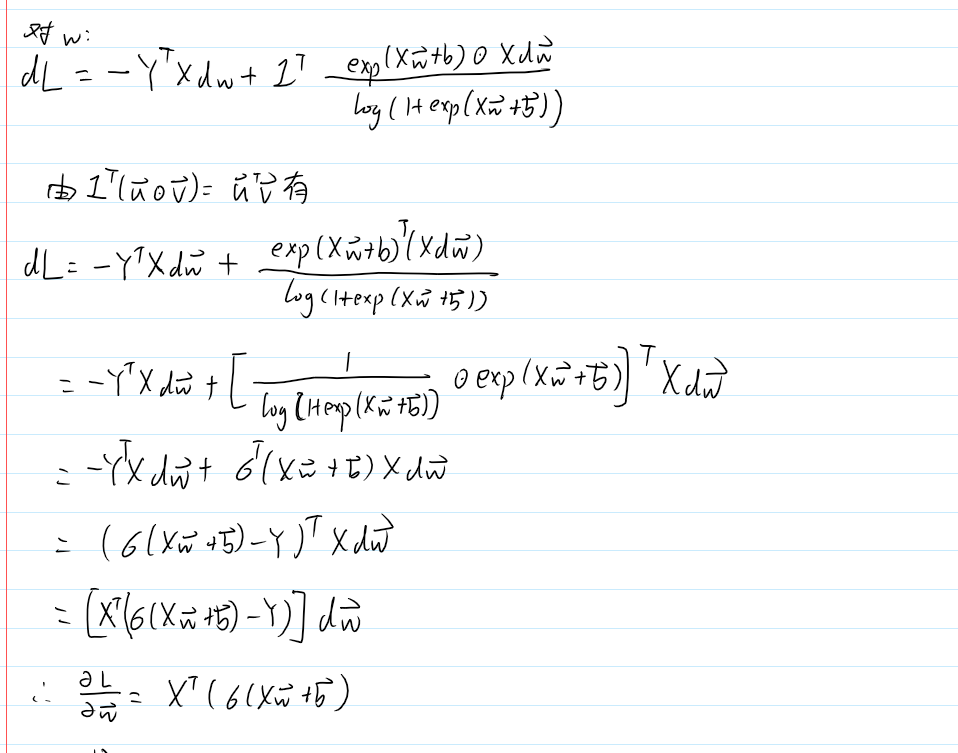 对 w:
dL = -Y^T X dw + 1^T \frac{exp(X\vec{w}+b) ⊙ Xd\vec{w}}{log(1+exp(X\vec{w}+\vec{b}))}
由 1^T(\vec{u}⊙\vec{v}) = \vec{u}^T\vec{v} 有
dL = -Y^T X d\vec{w} + \frac{exp(X\vec{w}+b)^T(Xd\vec{w})}{log(1+exp(X\vec{w}+\vec{b}))}
= -Y^T X d\vec{w} + [\frac{1}{log[1+exp(X\vec{w}+\vec{b}))} ⊙ exp(X\vec{w}+\vec{b})]^T X d\vec{w}
= -Y^T X d\vec{w} + σ^T(X\vec{w}+\vec{b}) X d\vec{w}
= (σ(X\vec{w}+\vec{b})-Y)^T X d\vec{w}
= [X^T(σ(X\vec{w}+\vec{b})-Y)] d\vec{w}
∴ \frac{∂L}{∂\vec{w}} = X^T(σ(X\vec{w}+\vec{b})